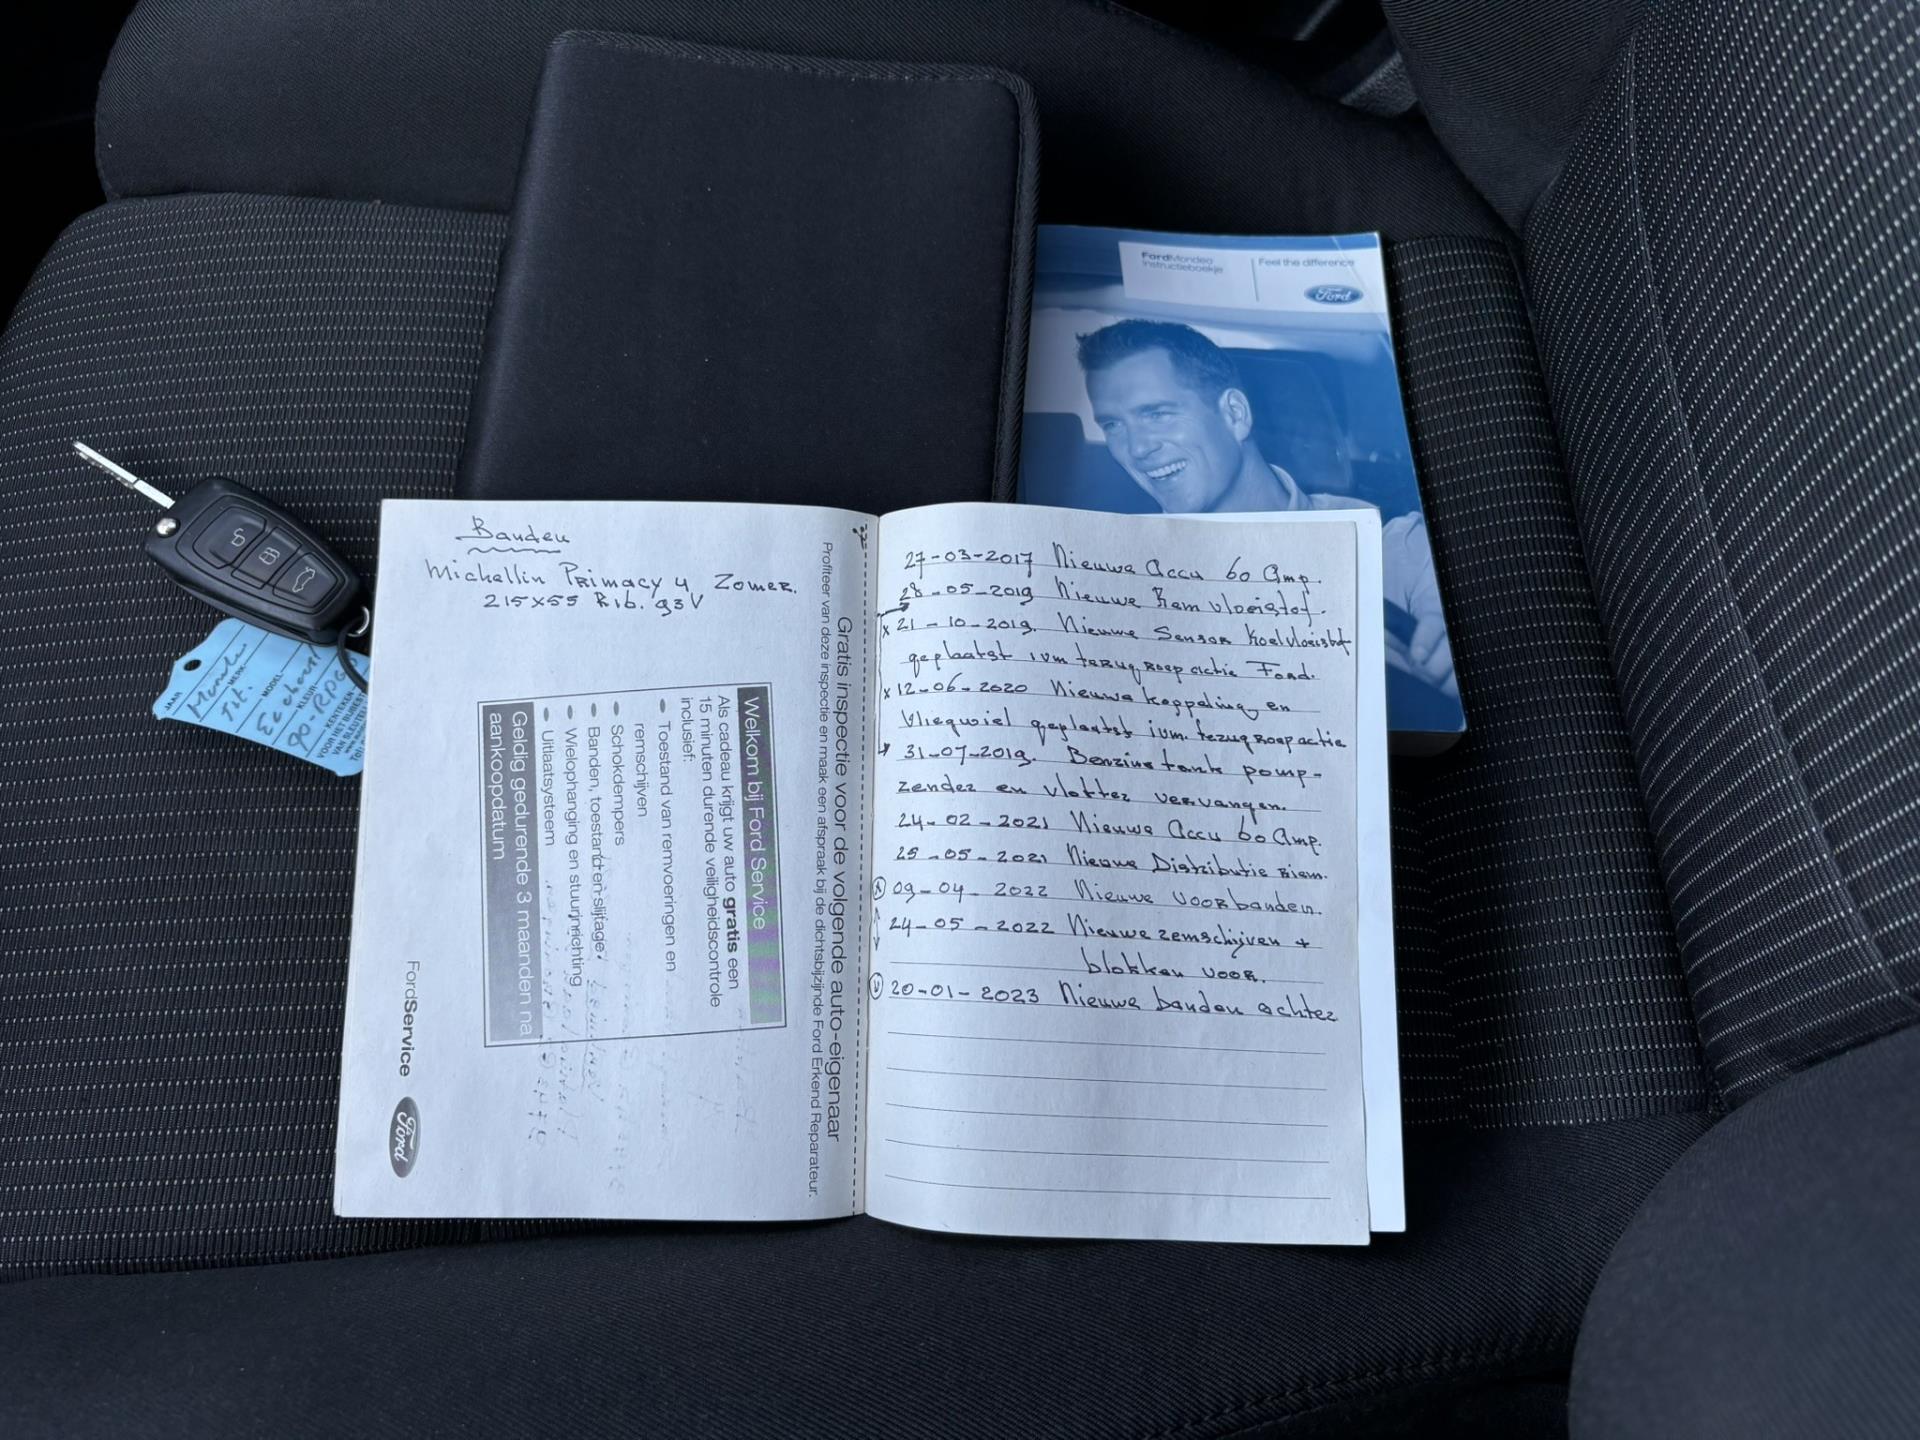 FordMondeo
Instructieboekje
Feel the difference
Ford
Banden
Michellin Primacy 4 Zomer.
215x55 R16. 93V
Gratis inspectie voor de volgende auto-eigenaar
Profiteer van deze inspectie en maak een afspraak bij de dichtsbijzijnde Ford Erkend Reparateur.
Welkom bij Ford Service
Als cadeau krijgt uw auto gratis een
15 minuten durende veiligheidscontrole
inclusief:
• Toestand van remvoeringen en
remschijven
• Schokdempers
• Banden, toestand en slijtage
• Wielophanging en stuurinrichting
• Uitlaatsysteem
Geldig gedurende 3 maanden na
aankoopdatum
FordService
Ford
27-03-2017 Nieuwe Accu 60 Amp.
28-05-2019 Nieuwe Rem vloeistof.
x 21-10-2019. Nieuwe Sensor Koelvloeistof
geplaatst ivm terugroep actie Ford.
x 12-06-2020 Nieuwe koppeling en
Vliegwiel geplaatst ivm. terugroep actie
31-07-2019. Benzine tank pomp-
zender en vlotter vervangen.
24-02-2021 Nieuwe Accu 60 Amp.
25-05-2021 Nieuwe Distributie Riem.
09-04-2022 Nieuwe Voorbanden.
24-05-2022 Nieuwe remschijven +
blokken voor.
20-01-2023 Nieuwe banden achter
JAAR
MERK
Mondeo
MODEL
Tit.
KLEUR
KENTEKEN
VOOR HET BIJBEST
VAN SLEUTEL